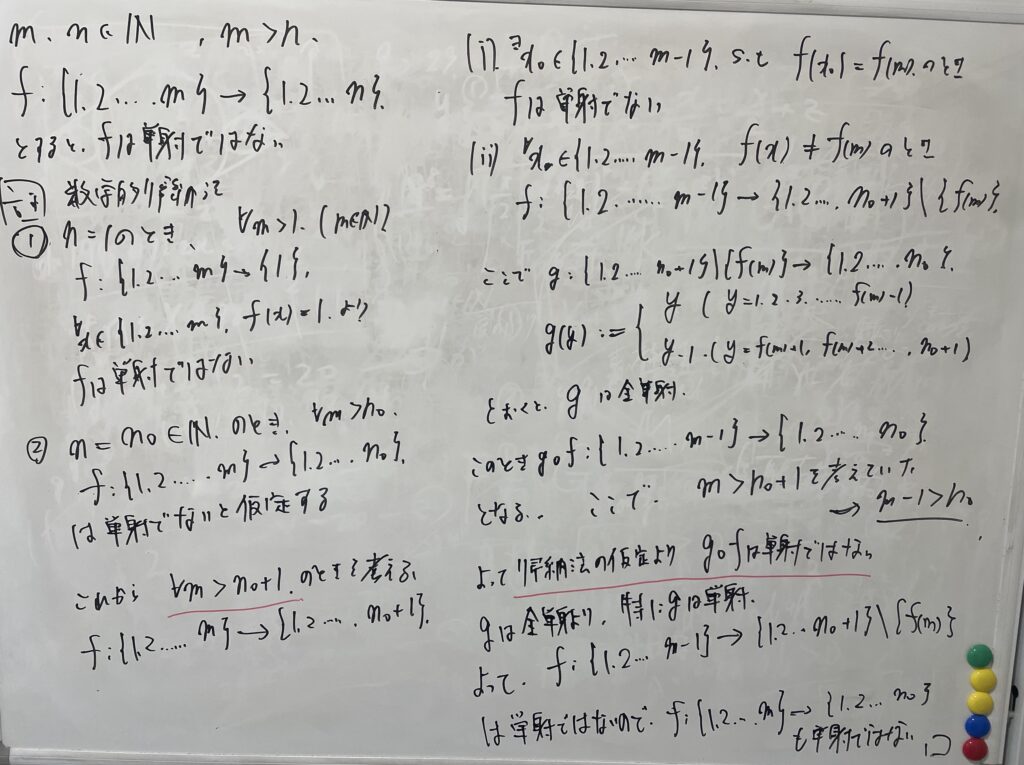 m, n ∈ ℕ , m > n.
f : {1.2 ... . m} → {1.2 ... n}.
とすると、fは単射ではない
証 数学的帰納法
① n = 1のとき、 ∀m > 1. (m∈ℕ)
f : {1.2 ... m} → {1}.
∀x ∈ {1.2 .... m}. f(x) = 1. より
fは単射ではない
② n = n₀ ∈ ℕ. のとき. ∀m > n₀.
f : {1.2 ..... m} → {1.2 ... n₀}.
は単射でないと仮定する
これから ∀m > n₀+1. のときを考える.
f : {1.2 ...... m} → {1.2 .... n₀+1}.
(i). ∃x₀ ∈ {1.2. ... m-1}. s.t f(x₀) = f(m). のとき
fは単射でない
(ii) ∀x₀ ∈ {1.2 ..... m-1}. f(x) ≠ f(m) のとき
f : {1.2. ...... m-1} → {1.2 .... n₀+1} \ {f(m)}.
ここで g : {1.2 .... n₀+1} \ {f(m)} → {1.2 .... n₀}.
y ( y = 1.2.3. ..... f(m)-1)
g(y) := {
y-1. (y = f(m)+1, f(m)+2 .... , n₀+1)
とおくと、g は全単射.
このとき g∘f : {1.2 .... m-1} → {1.2 .... n₀}.
となる. ここで. m > n₀+1 を考えていた
→ m-1 > n₀
よって 帰納法の仮定より g∘fは単射ではない
gは全単射より. 特に gは単射.
よって. f : {1.2 ... m-1} → {1.2 .. n₀+1} \ {f(m)}
は単射ではないので. f : {1.2 ... m} → {1.2 ... n₀}
も単射ではない □